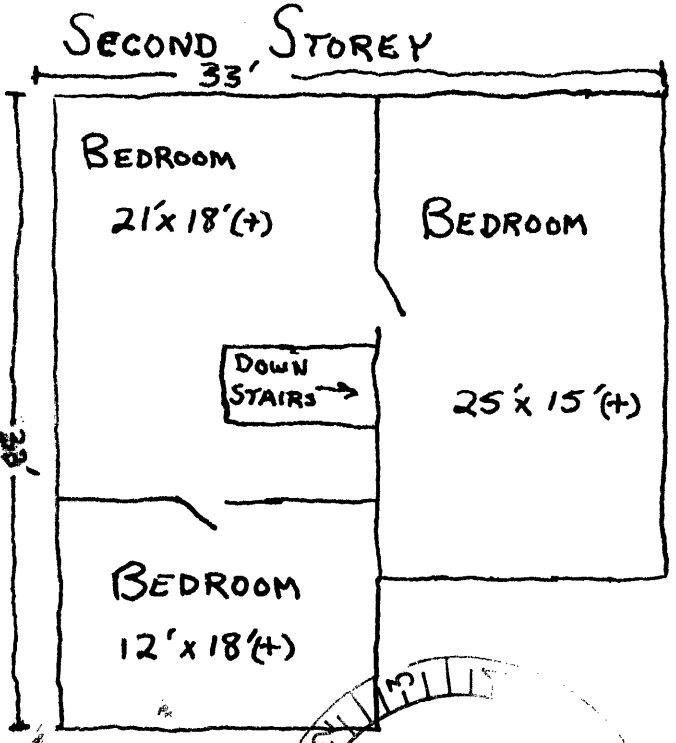 SECOND STOREY
33'
BEDROOM
21'x 18'(+)
BEDROOM
DOWN
STAIRS →
25'x 15'(+)
33'
BEDROOM
12'x 18'(+)
3